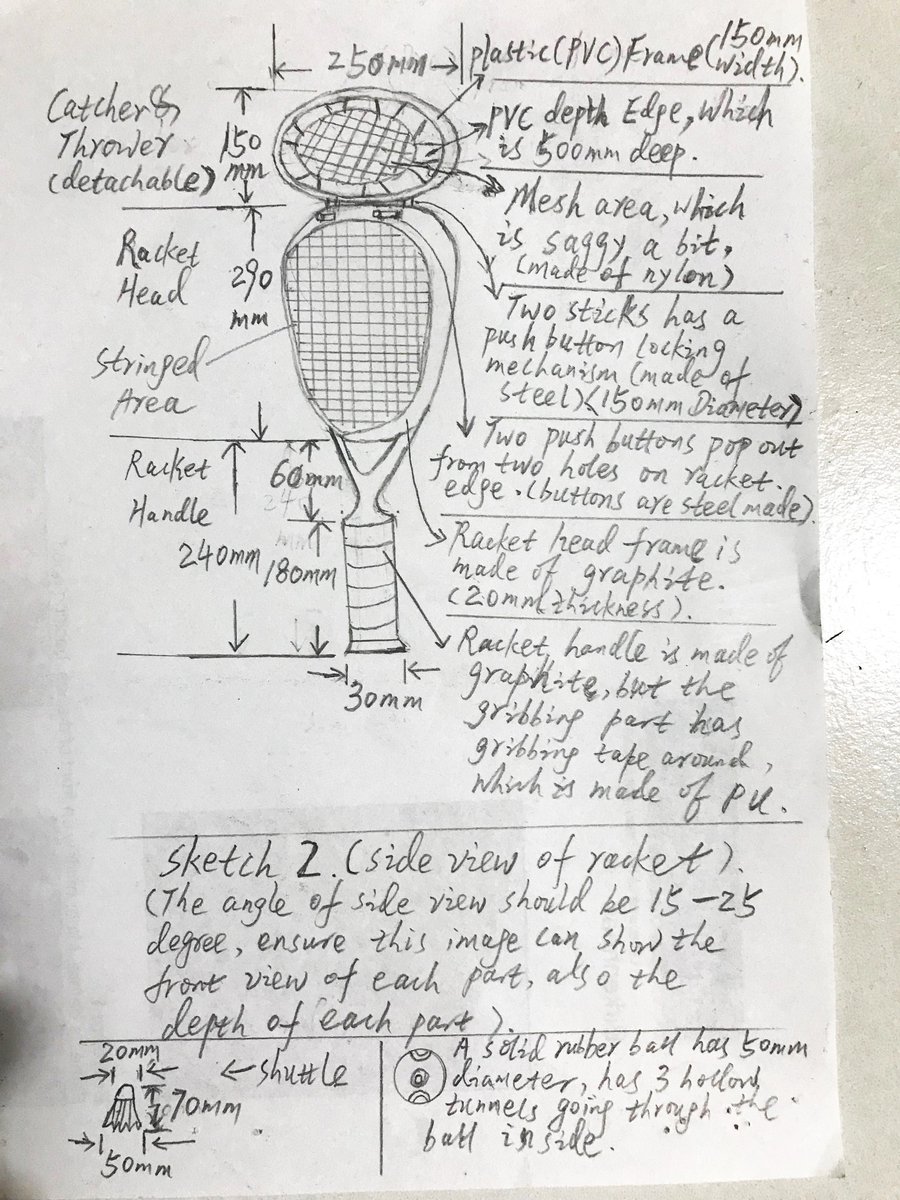 250mm
plastic(PVC)Frame(150mm width).
Catcher&
Thrower
(detachable)
150
mm
PVC depth Edge, which
is 500mm deep.
Mesh area, which
is saggy a bit,
(made of nylon)
Racket
Head
290
mm
Two sticks has a
push button locking
mechanism (made of
steel)(150mm Diameter)
stringed
Area
Two push buttons pop out
from two holes on racket.
edge. (buttons are steel made)
Racket
Handle
60mm
240mm
180mm
Racket head frame is
made of graphite.
(20mm thickness).
30mm
Racket handle is made of
graphite, but the
gribbing part has
gribbing tape around,
which is made of PU.
Sketch 2. (side view of racket).
(The angle of side view should be 15-25
degree, ensure this image can show the
front view of each part, also the
depth of each part).
20mm
shuttle
70mm
50mm
A solid rubber ball has 50mm
diameter, has 3 hollow
tunnels going through the
ball inside.